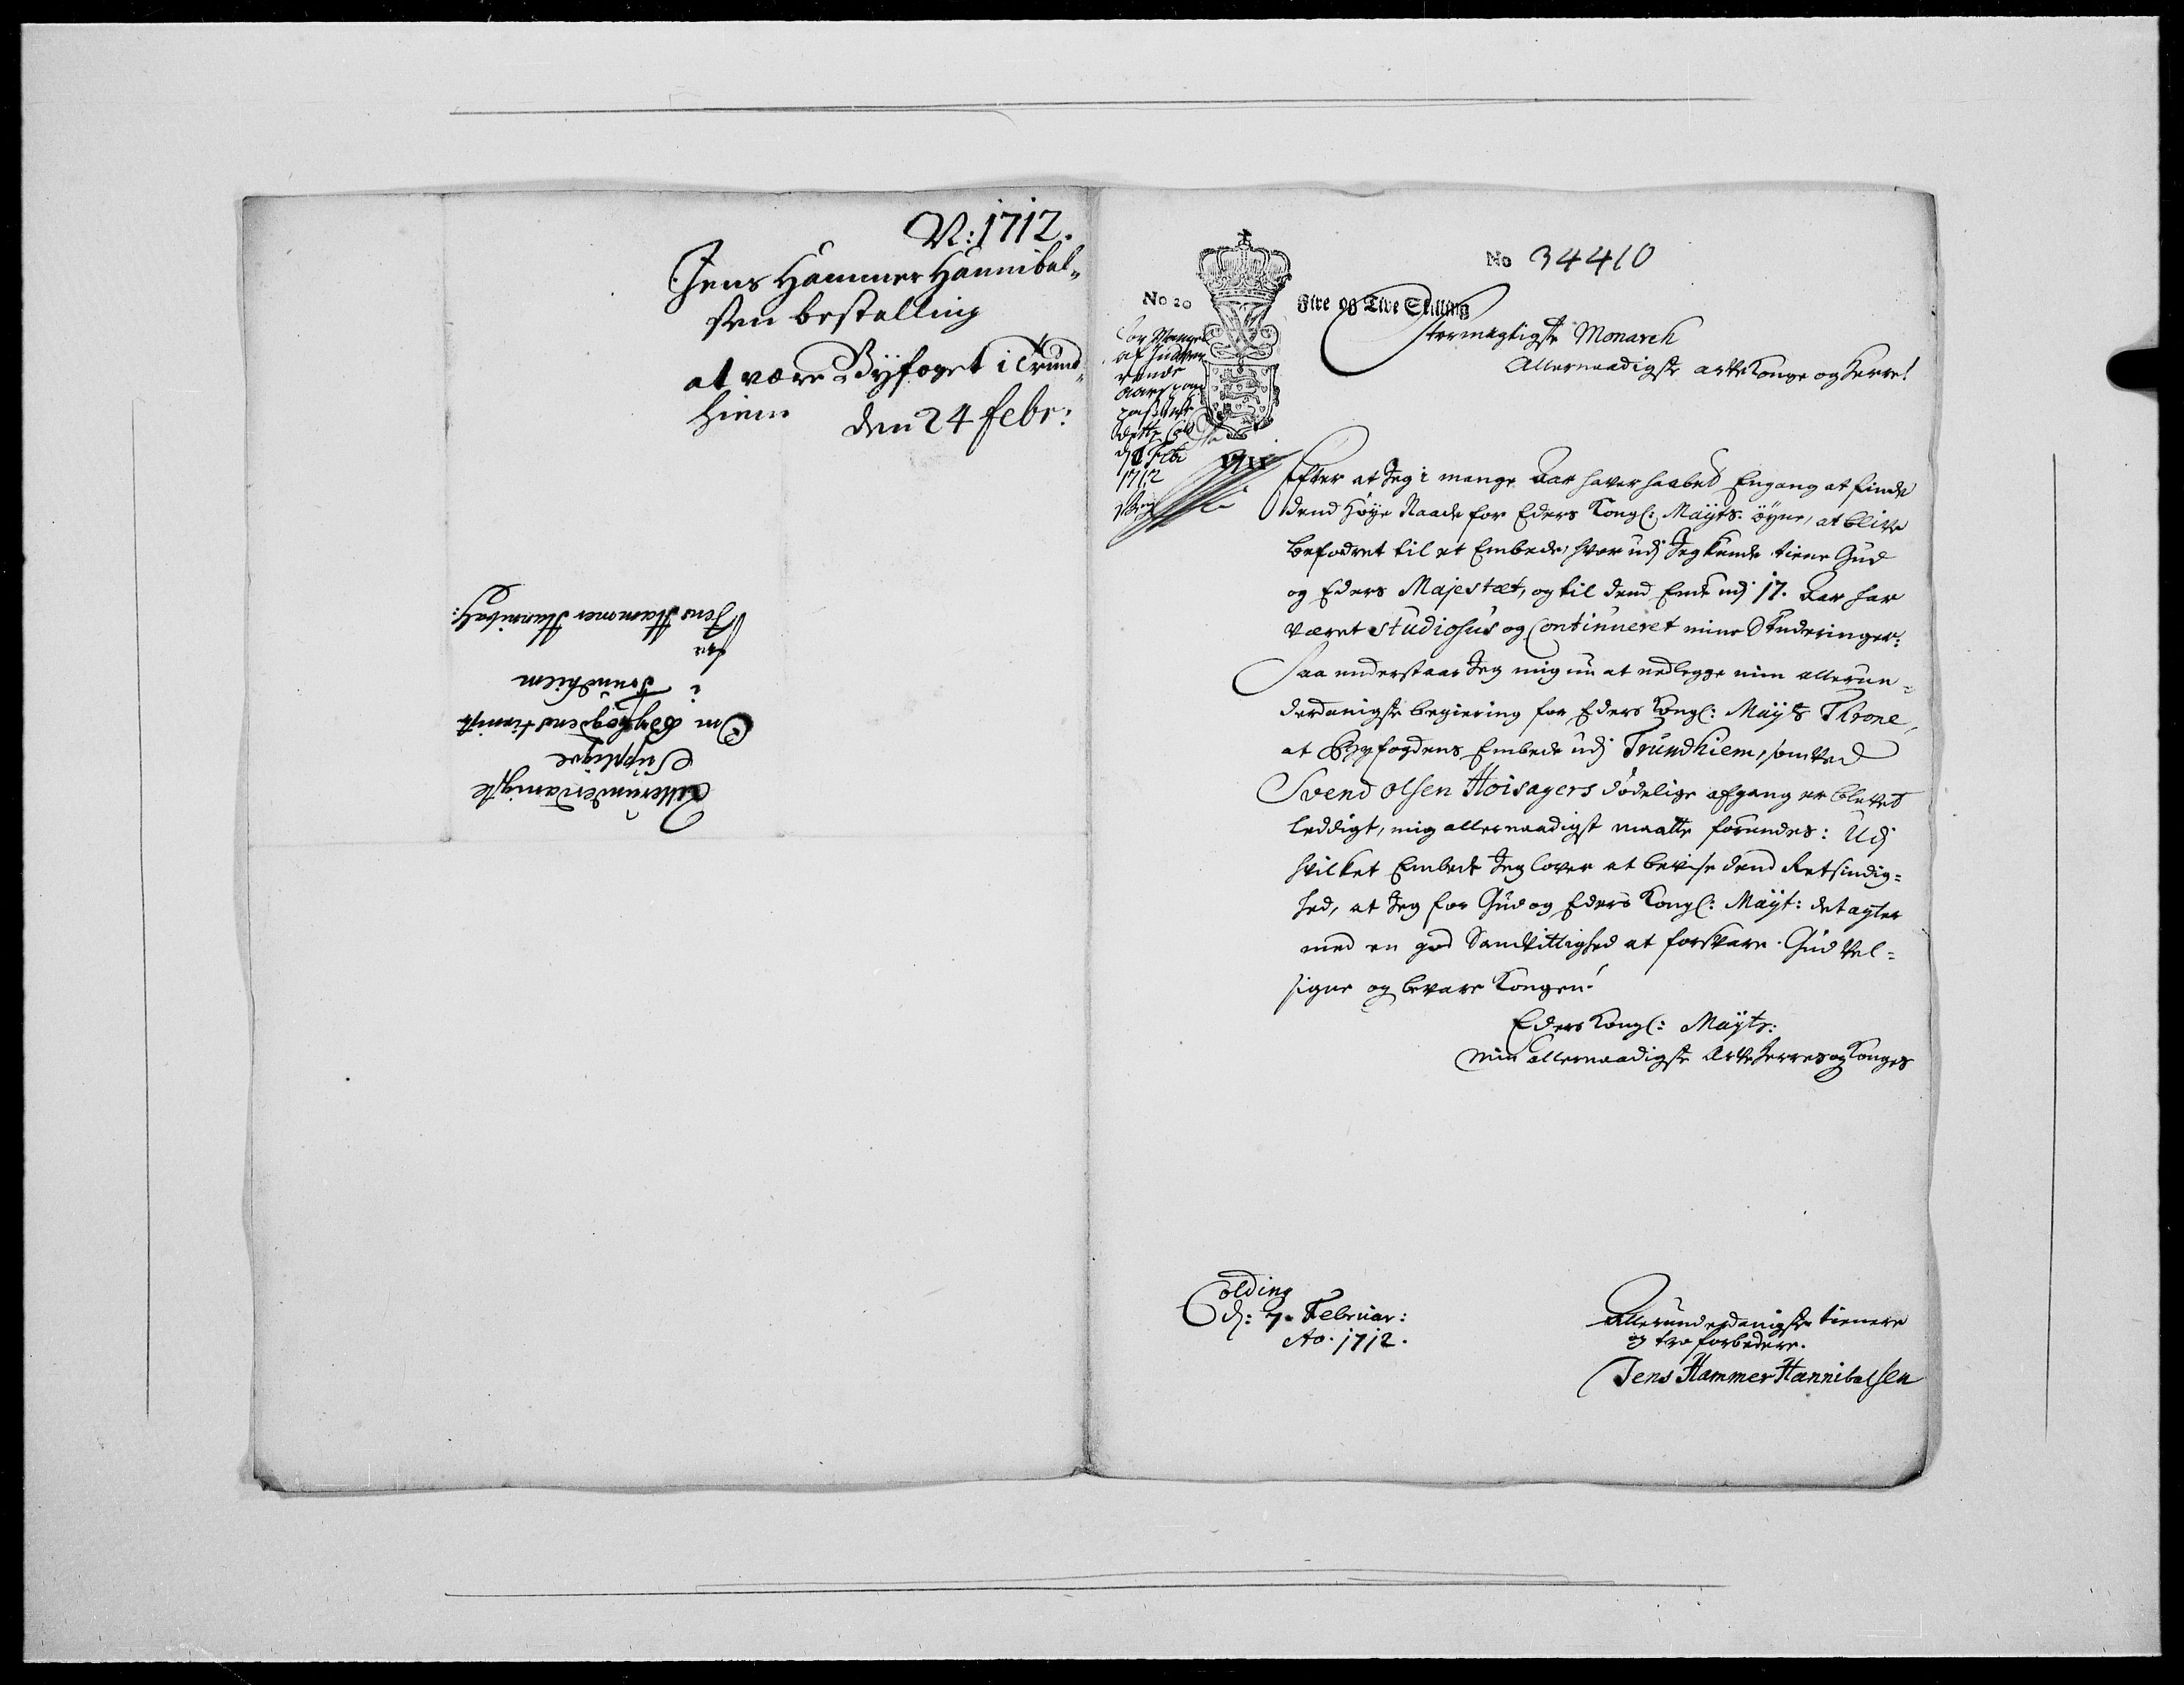 N: 1712.
Jens Hammer Hannibal-
sen bestelling
at være Byfoget i Trund-
hiem den 24 febr:
Allerunderdanigste
Supplique
Om Byfogdens tieniste
i Trundhiem
for
Jens Hammer Hannibals:
No 34410
No 20
Fire og Tive Skilling
for Mangel
af
Aars
passerer
dette
d. Febr
1712
1711
Stormegtigste Monarch
Allernaadigste arfve Konge og Herre!
Efter at Jeg i mange Aar haver haabed Engang at finde
dend Høye Naade for Eders Kongl: Mayts. øyne, at blive
befodret til et Embede, hvor udj Jeg kunde tiene Gud
og Eders Majestæt, og til dend Ende udj 17. Aar har
været studiosus og Continueret mine Studeringer:
Saa understaar Jeg mig nu at nedlegge min allerun=
derdanigste begiering for Eders Kongl: Mayts Throne,
at Byfogdens Embede udj Trundhiem, som ved
Svend Olsen Hoisagers dødelige afgang er blevet
leddigt, mig allernaadigst maatte forundes: Udj
hvilket Embede Jeg lover at bevise dend Retsindig=
hed, at Jeg for Gud og Eders Kongl: Mayt: det agter
med en god Samvittighed at forsvare. Gud Vel=
signe og bevare Kongen!
Eders Kongl: Mayts:
Min allernaadigste Arfve Herres og Konges
Colding
d: 7. Februar:
Ao. 1712.
Allerunderdanigste tienere
og tro forbedere.
Jens Hammer Hannibalsen